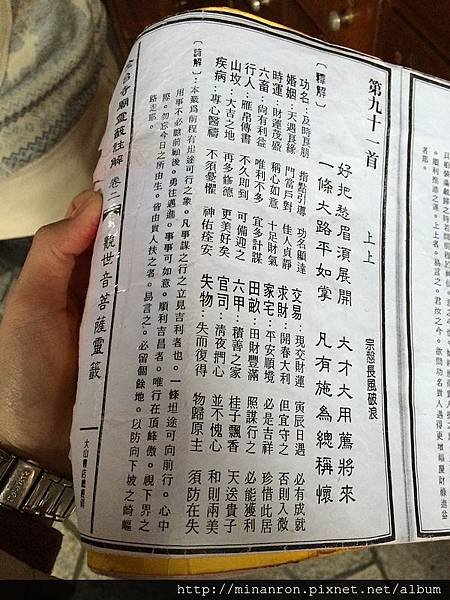 第九十一首
上上
宗愨長風破浪
好把愁眉漸展開 大才大用薦將來
一條大路平如掌 凡有施為總稱懷
〔釋解〕
功名：及時良朋 指點引導 功名顯達
婚姻：天遇良緣 門當戶對 佳人貞靜
時運：財運茂盛 稱心如意 十足財氣
六畜：尚有利益 唯利不多 宜多計謀
行人：雁帛傳書 不久即到 可備迎之
山坟：大吉之地 再多修德 更美好矣
疾病：專心醫禱 不須憂懼 神佑痊安
交易：現交財運 寅辰日遇 必有成就
求財：開春大利 但宜守之 否則入微
家宅：平安順境 必是吉祥 珍惜此居
田畝：田財豐滿 照謀行之 必能獲利
六甲：積善之家 桂子飄香 天送貴子
官司：清夜捫心 並不愧心 和則兩美
失物：失而復得 物歸原主 須防在失
〔詮解〕：本籤爲前程有坦途可行之象。凡事謀之行之立見吉利者也。一條坦途可向前行。心中
用事不必瞻前顧後。勇往邁進。事事可如意。順利吉昌者。唯行在頂峰傲。視下界之
際。勿忘今日之所由生。皆由貴人扶之者。易言之。必留個餘地。以防向下坡之崎嶇
路走耶。
寺廟靈籤註解 卷二 觀世音菩薩靈籤
http://minanron.pixnet.net/album